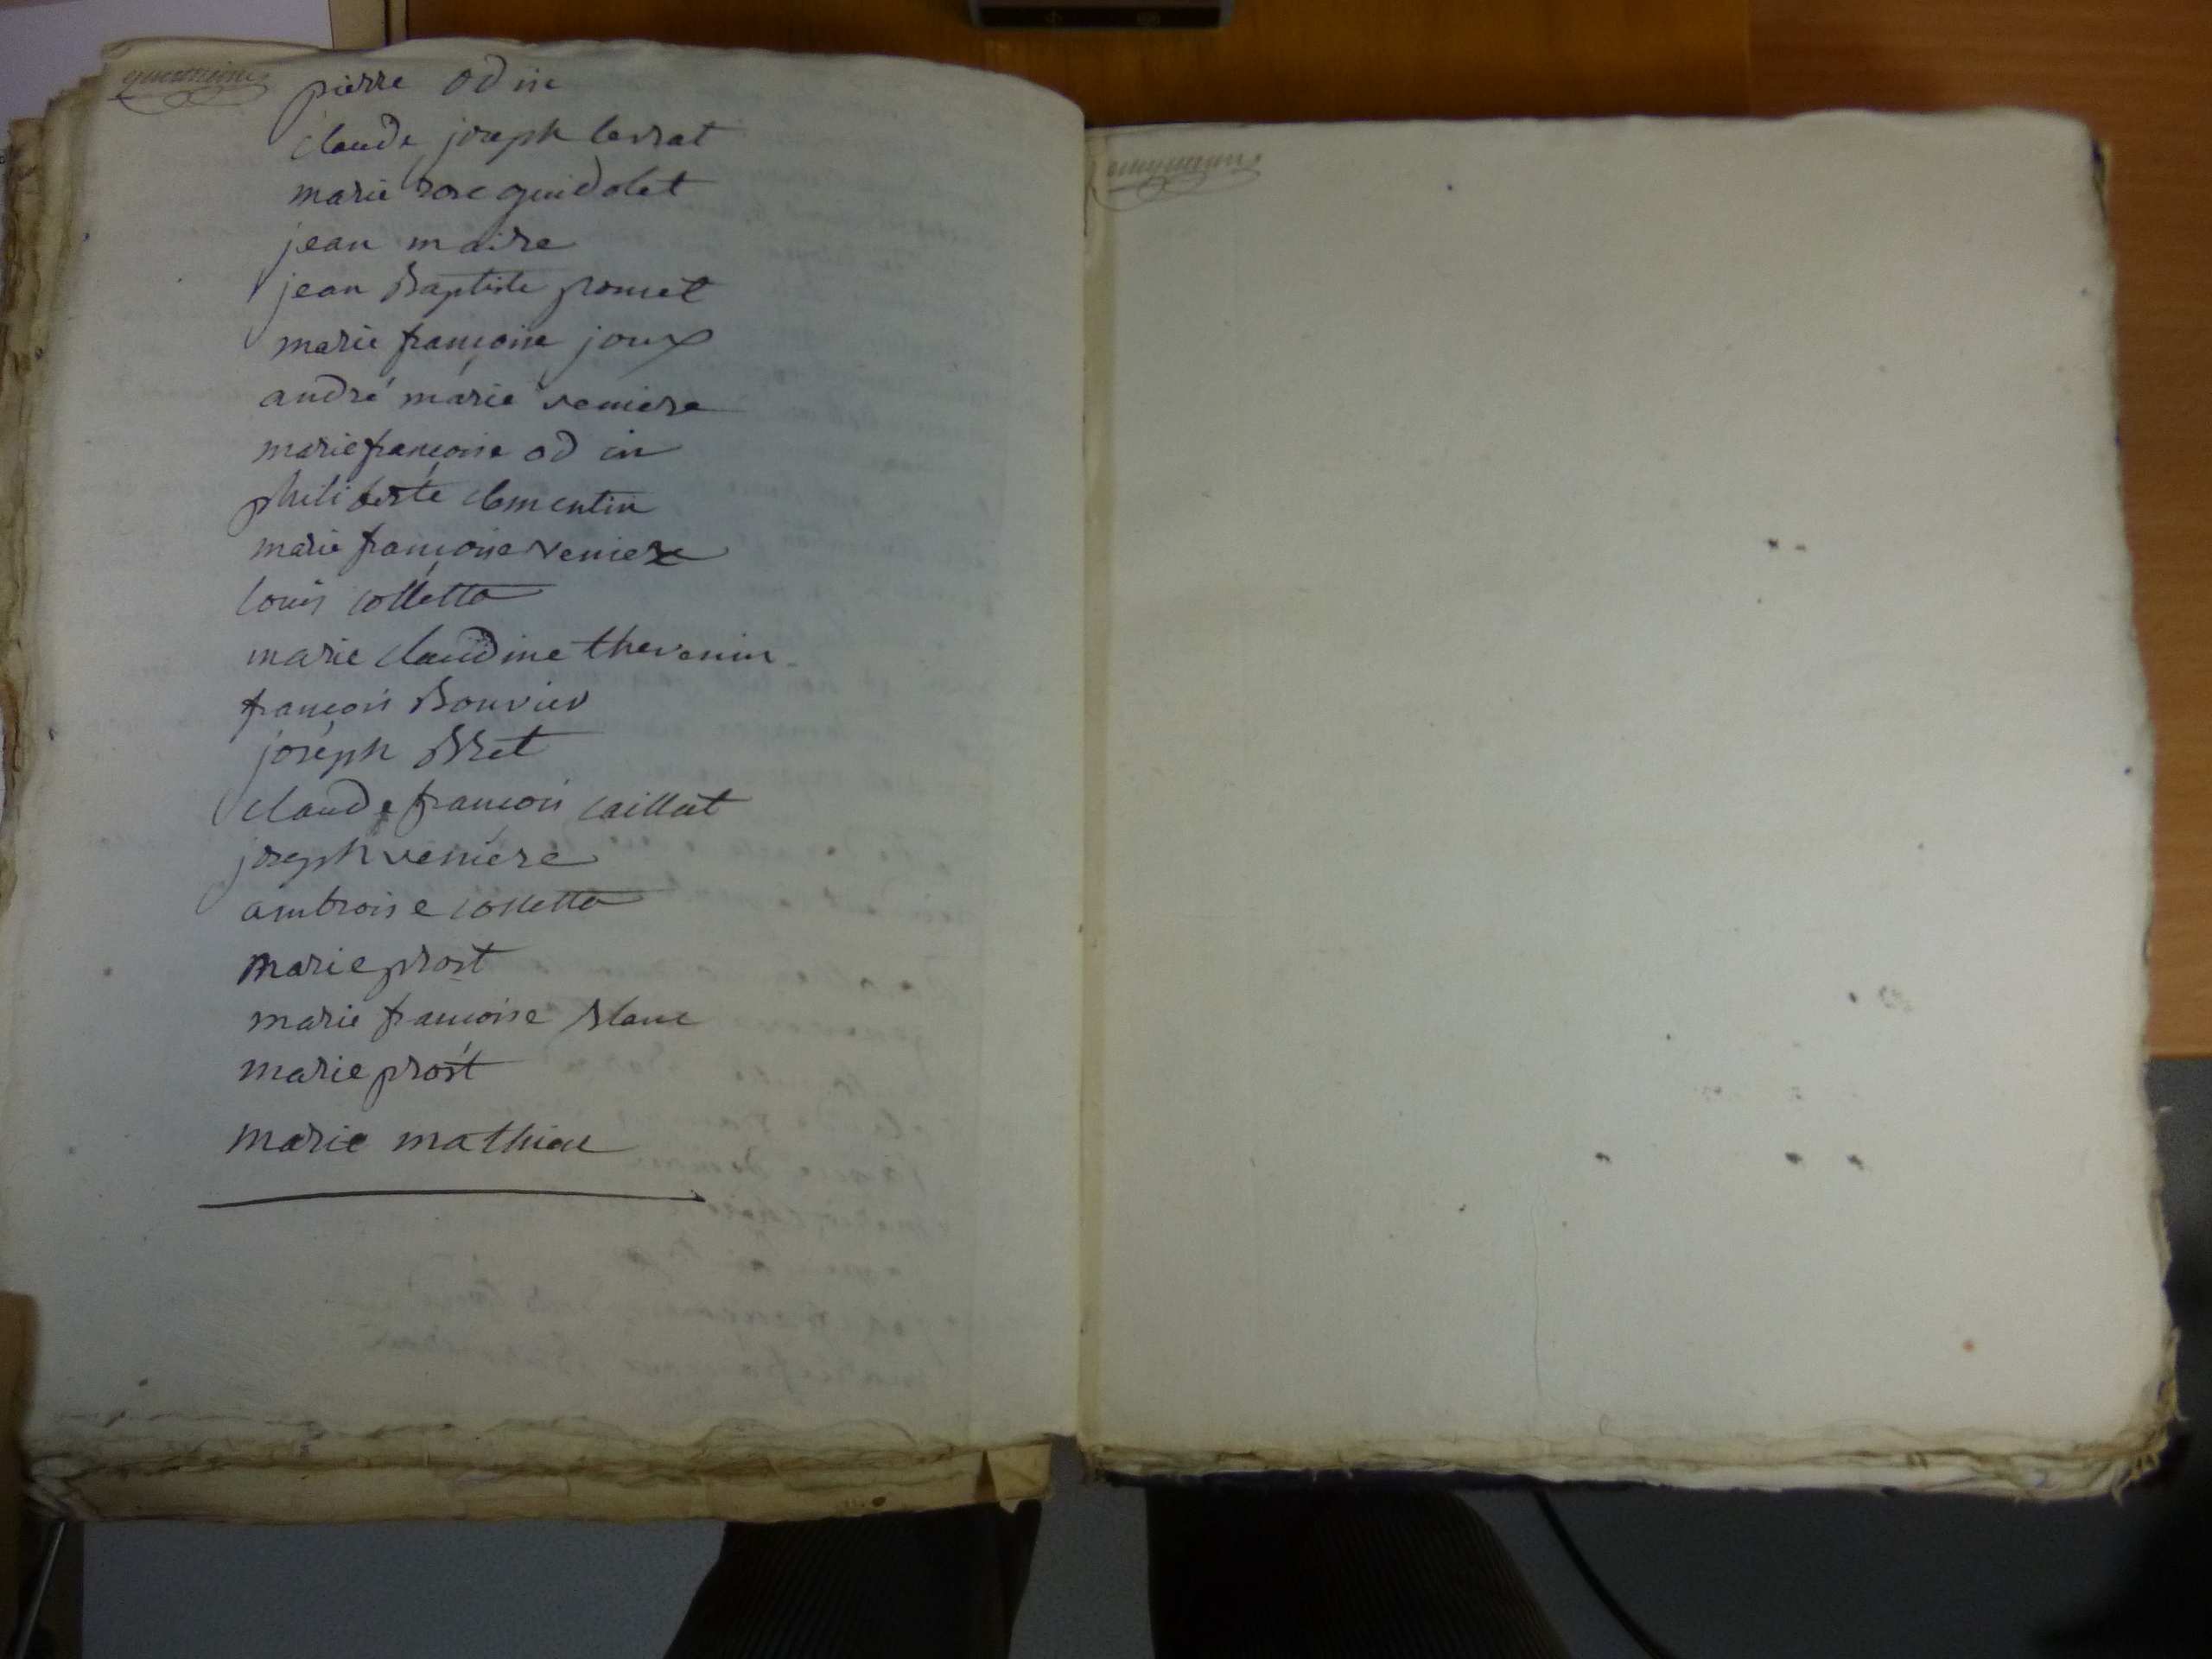 pierre odin
claude joseph lerrat
marie rose guidolet
jean maire
jean Baptiste ponset
marie françoise joux
andré marie veniere
marie françoise odin
philiberte clementin
marie françoise veniere
louis colletta
marie claudine thevenin
françois Bouvier
joseph Bret
claude françois caillat
joseph veniere
ambroise colletta
marie prost
marie françoise blanc
marie prost
marie mathieu